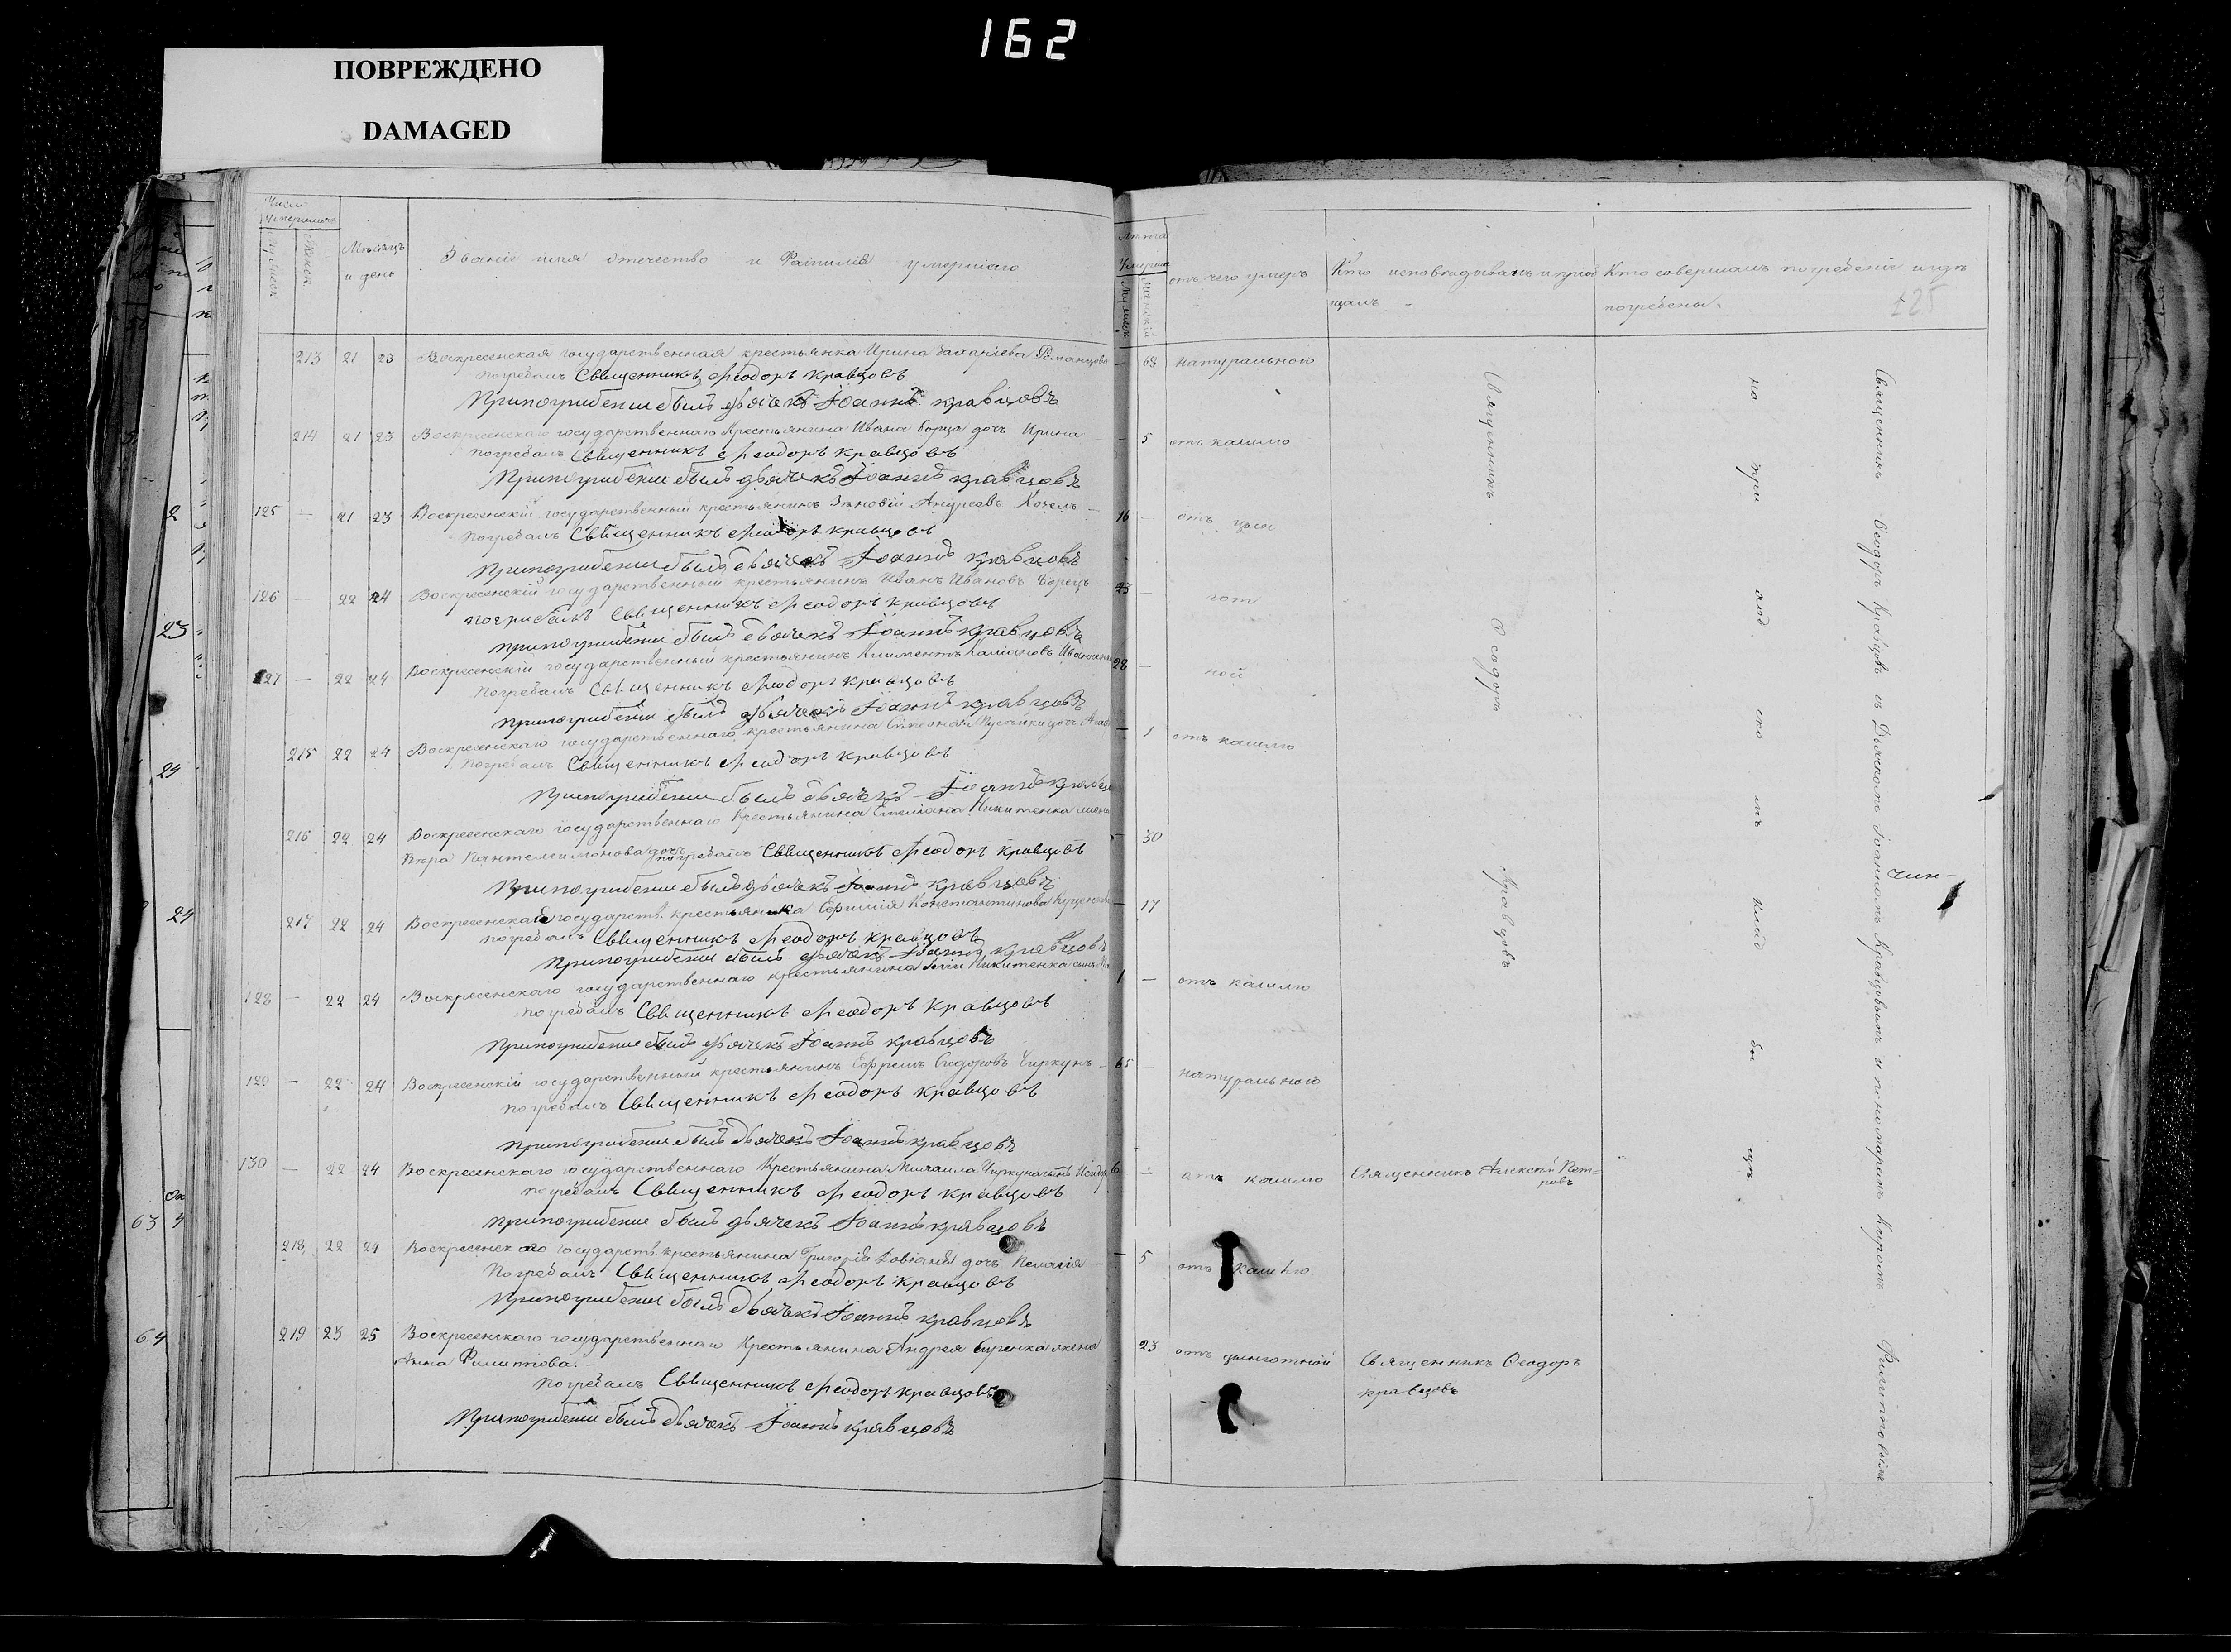 162
ПОВРЕЖДЕНО
DAMAGED
Число умершихъ
Мѣсяцъ и день
Званіе имя отечество и Фамилія умершаго
Лѣта умерша
отъ чего умеръ
Кто исповѣдывалъ и пріоб
щалъ
Кто совершалъ погребеніе и гдѣ
погребены.
213 21 23 Воскресенская государственная крестьянка Ирина Захаріева Романцова — 68 натуральной
погребалъ Священникъ Феодоръ Кравцовъ
Припогрибении былъ дьячекъ Іоаннъ кравцовъ
214 21 23 Воскресенскаго государственнаго Крестьянина Ивана Борца дочь Ирина — 5 отъ кашлю
погребалъ Священникъ Феодоръ Кравцовъ
Припогрибении былъ дьячекъ Іоаннъ кравцовъ
125 — 21 23 Воскресенскій государственный крестьянинъ Зѣновій Андреевъ 16 — отъ цын
погребалъ Священникъ Феодоръ Кравцовъ
Припогрибении былъ дьячекъ Іоаннъ кравцовъ
126 — 22 24 Воскресенскій государственный крестьянинъ Иванъ Ивановъ Борецъ 23 — гот
погрибалъ Священникъ Феодоръ Кравцовъ
припогрибении былъ дьячекъ Іоаннъ кравцовъ
127 — 22 24 Воскресенскій государственный крестьянинъ Климентъ 28 — ной
погребалъ Священникъ Феодоръ Кравцовъ
припогрибении былъ дьячекъ Іоаннъ кравцовъ
215 22 24 Воскресенскаго государственнаго крестьянина дочь — 1 отъ кашлю
погребалъ Священникъ Феодоръ Кравцовъ
Припогрибении былъ дьячекъ Іоаннъ
216 22 24 Воскресенскаго государственнаго Крестьянина Никитенка — 30
Пантелеимонова дочь погребалъ Священникъ Феодоръ Кравцовъ
Припогрибении былъ дьячекъ Іоаннъ кравцовъ
217 22 24 Воскресенская государств. крестьянка Константинова — 17
погребалъ Священникъ Феодоръ Кравцовъ
Припогрибении былъ дьячекъ Іоаннъ кравцовъ
128 — 22 24 Воскресенскаго государственнаго крестьянина Никитенка сынъ 1 — отъ кашлю
погребалъ Священникъ Феодоръ Кравцовъ
Припогрибении былъ дьячекъ Іоаннъ кравцовъ
129 — 22 24 Воскресенскій государственный крестьянинъ Ефремъ Сидоровъ Чиркунъ — 65 — натуральной
погребалъ Священникъ Феодоръ Кравцовъ
Припогрибении былъ дьячекъ Іоаннъ кравцовъ
130 — 22 24 Воскресенскаго государственнаго Крестьянина Михаила Чиркуна сынъ 6 — отъ кашлю Священникъ Алексей Пет-
ровъ
погребалъ Священникъ Феодоръ Кравцовъ
припогрибении былъ дьячекъ Іоаннъ кравцовъ
218, 22 24 государств. крестьянина Григорія дочь Пелагія — 5 отъ кашлю
Погребалъ Священникъ Феодоръ Кравцовъ
припогрибении былъ дьячекъ Іоаннъ кравцовъ
219 23 25 Воскресенскаго государственнаго Крестьянина Андрея жена 23 отъ цынготной Священникъ Феодоръ
Кравцовъ
Анна Филиппова. —
погребалъ Священникъ Феодоръ Кравцовъ
Припогрибении былъ дьячекъ Іоаннъ кравцовъ
Священникъ Феодоръ Кравцовъ
на при ход ско мъ клад би щѣ.
Священникъ Феодоръ Кравцовъ съ Дьячкомъ Іоанномъ Кравцовымъ и пономаремъ Филипповымъ
чин-
2
23
24
24
63
64